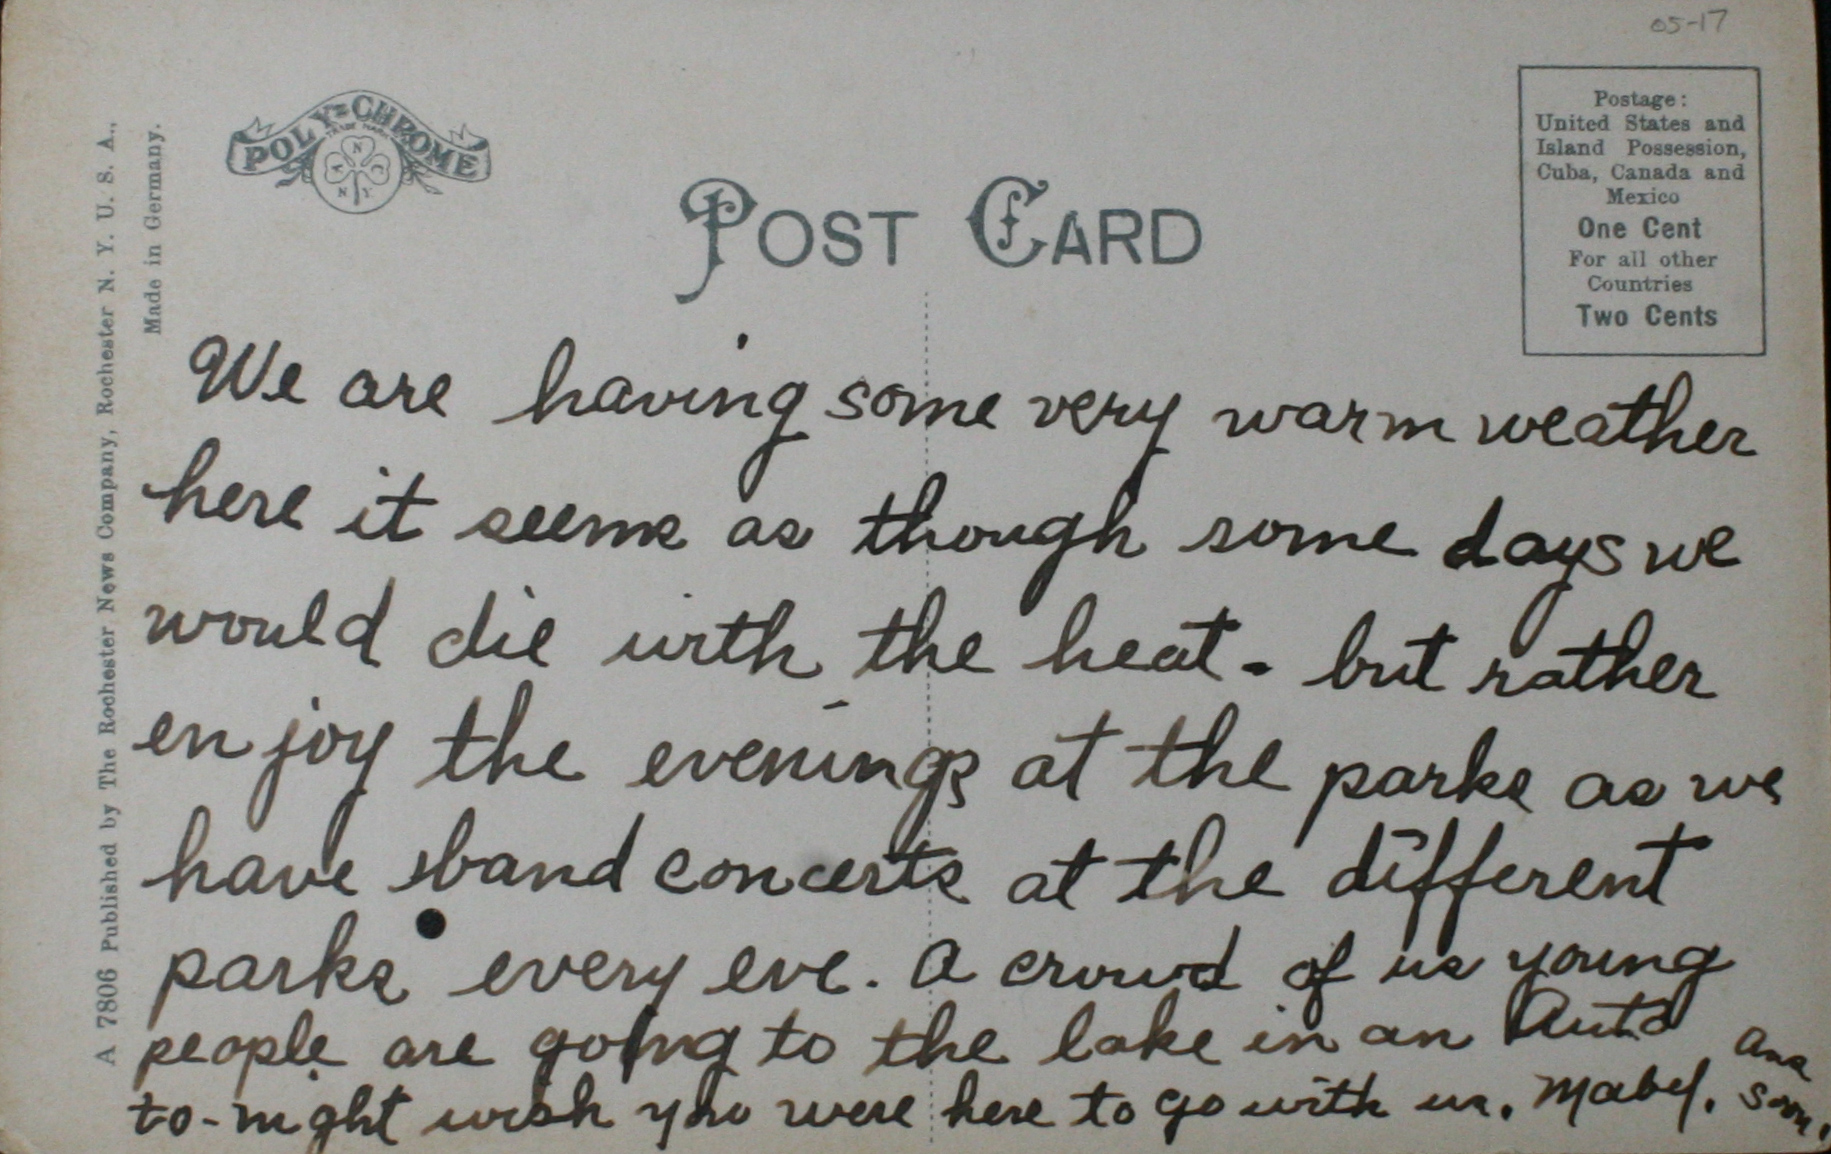 05-17
POLY-CHROME
TRADE MARK
A N C
N Y
POST CARD
Postage:
United States and
Island Possession,
Cuba, Canada and
Mexico
One Cent
For all other
Countries
Two Cents
A 7806 Published by The Rochester News Company, Rochester N. Y. U. S. A.,
Made in Germany.
We are having some very warm weather
here it seems as though some days we
would die with the heat - but rather
enjoy the evenings at the parks as we
have band concerts at the different
parks every eve. A crowd of us young
people are going to the lake in an Auto
to-night wish you were here to go with us. Mabel.
Ans
soon.